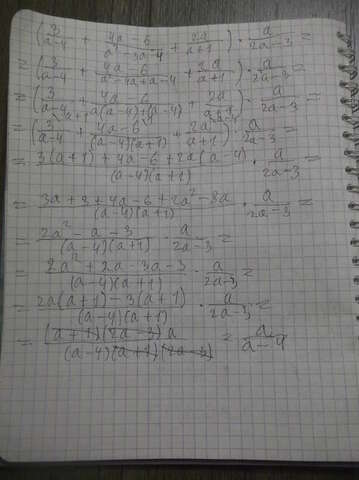 (3/(a-4) + (4a-6)/(a²-3a-4) + 2a/(a+1)) · a/(2a-3) =
= (3/(a-4) + (4a-6)/(a²-4a+a-4) + 2a/(a+1)) · a/(2a-3) =
= (3/(a-4) + (4a-6)/(a(a-4)+(a-4)) + 2a/(a+1)) · a/(2a-3) =
= (3/(a-4) + (4a-6)/((a-4)(a+1)) + 2a/(a+1)) · a/(2a-3) =
= (3(a+1)+4a-6+2a(a-4))/((a-4)(a+1)) · a/(2a-3) =
= (3a+3+4a-6+2a²-8a)/((a-4)(a+1)) · a/(2a-3) =
= (2a²-a-3)/((a-4)(a+1)) · a/(2a-3) =
= (2a²+2a-3a-3)/((a-4)(a+1)) · a/(2a-3) =
= (2a(a+1)-3(a+1))/((a-4)(a+1)) · a/(2a-3) =
= ((a+1)(2a-3)a)/((a-4)(a+1)(2a-3)) = a/(a-4)